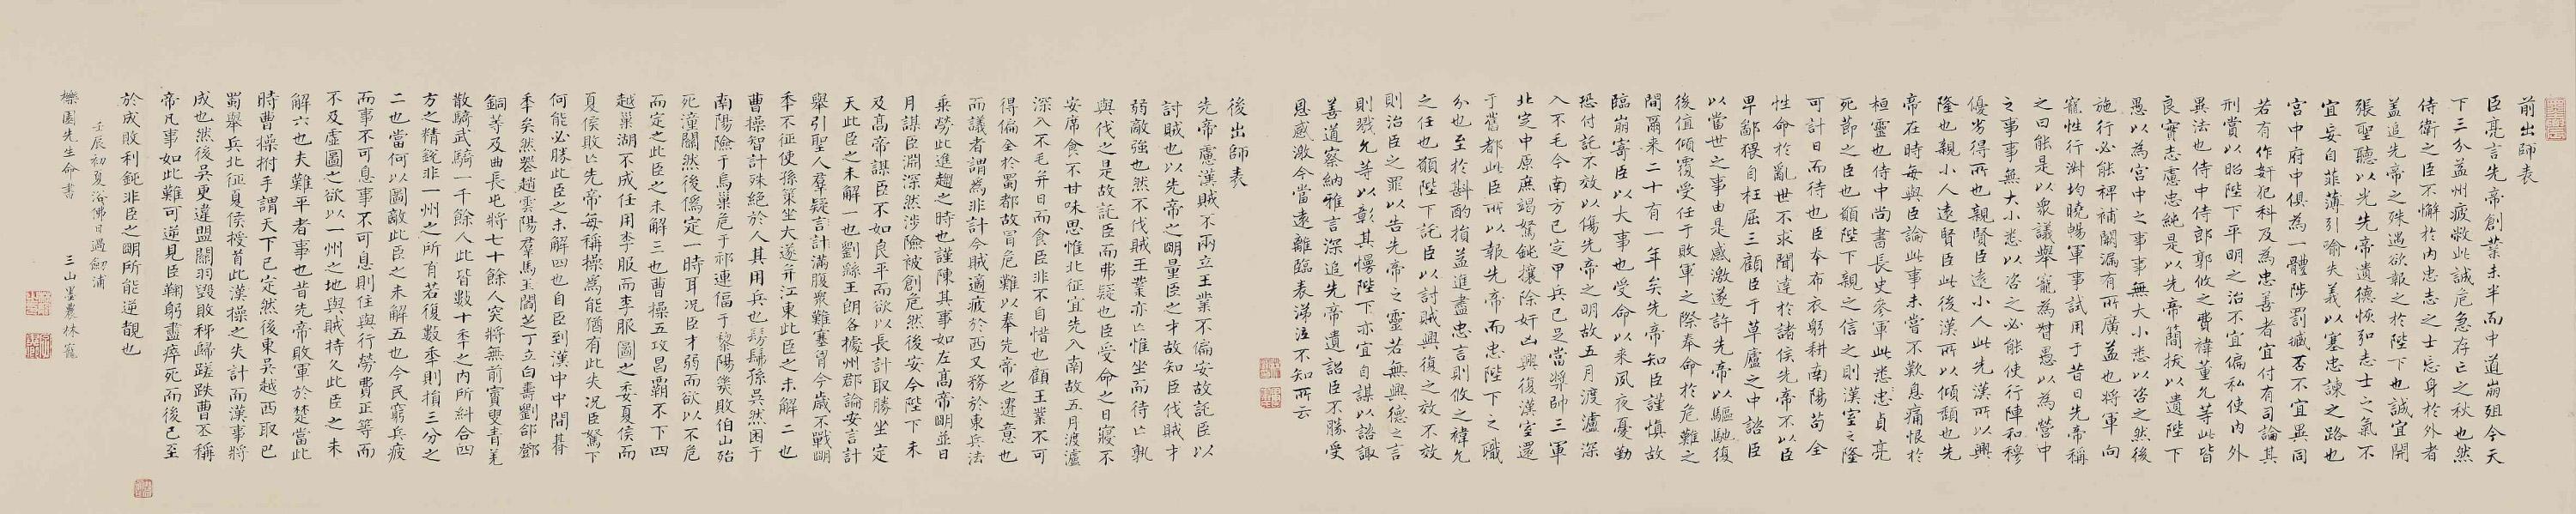 前出師表
臣亮言先帝創業未半而中道崩殂今天
下三分益州疲敝此誠危急存亡之秋也然
侍衛之臣不懈於內忠志之士忘身於外者
蓋追先帝之殊遇欲報之於陛下也誠宜開
張聖聽以光先帝遺德恢弘志士之氣不
宜妄自菲薄引喻失義以塞忠諫之路也
宮中府中俱為一體陟罰臧否不宜異同
若有作奸犯科及為忠善者宜付有司論其
刑賞以昭陛下平明之治不宜偏私使內外
異法也侍中侍郎郭攸之費褘董允等此皆
良實志慮忠純是以先帝簡拔以遺陛下
愚以為宮中之事事無大小悉以咨之然後
施行必能裨補闕漏有所廣益也將軍向
寵性行淑均曉暢軍事試用于昔日先帝稱
之曰能是以眾議舉寵為督愚以為營中
之事事無大小悉以咨之必能使行陣和穆
優劣得所也親賢臣遠小人此先漢所以興
隆也親小人遠賢臣此後漢所以傾頹也先
帝在時每與臣論此事未嘗不歎息痛恨於
桓靈也侍中尚書長史參軍此悉忠貞亮
死節之臣也願陛下親之信之則漢室之隆
可計日而待也臣本布衣躬耕南陽苟全
性命於亂世不求聞達於諸侯先帝不以臣
卑鄙猥自枉屈三顧臣于草廬之中諮臣
以當世之事由是感激遂許先帝以驅馳復
後值傾覆受任于敗軍之際奉命於危難之
間爾来二十有一年矣先帝知臣謹慎故
臨崩寄臣以大事也受命以来夙夜憂勤
恐付託不效以傷先帝之明故五月渡瀘深
入不毛今南方已定甲兵已足當獎帥三軍
北定中原庶竭駑鈍攘除奸凶興復漢室還
于舊都此臣所以報先帝而忠陛下之職
分也至於斟酌損益進盡忠言則攸之褘允
之任也願陛下託臣以討賊興復之效不效
則治臣之罪以告先帝之靈若無興德之言
則戮允等以彰其慢陛下亦宜自謀以諮諏
善道察納雅言深追先帝遺詔臣不勝受
恩感激今當遠離臨表涕泣不知所云
後出師表
先帝慮漢賊不兩立王業不偏安故託臣以
討賊也以先帝之明量臣之才故知臣伐賊才
弱敵強也然不伐賊王業亦亡惟坐而待亡孰
與伐之是故託臣而弗疑也臣受命之日寢不
安席食不甘味思惟北征宜先入南故五月渡瀘
深入不毛并日而食臣非不自惜也顧王業不可
得偏全於蜀都故冒危難以奉先帝之遺意也
而議者謂為非計今賊適疲於西又務於東兵法
乘勞此進趨之時也謹陳其事如左高帝明並日
月謀臣淵深然涉險被創危然後安今陛下未
及高帝謀臣不如良平而欲以長計取勝坐定
天此臣之未解一也劉繇王朗各據州郡論安言計
舉引聖人羣疑言計滿腹眾難塞胷今歲不戰明
年不征使孫策坐大遂并江東此臣之未解二也
曹操智計殊絕於人其用兵也髣髴孫吳然困于
南陽險于烏巢危于祁連偪于黎陽幾敗伯山殆
死潼關然後偽定一時耳況臣才弱而欲以不危
而定之此臣之未解三也曹操五攻昌霸不下四
越巢湖不成任用李服而李服圖之委夏侯而
夏侯敗亡先帝每稱操為能猶有此失況臣駑下
何能必勝此臣之未解四也自臣到漢中中間朞
年矣然喪趙雲陽羣馬玉閻芝丁立白壽劉郃鄧
銅等及曲長屯將七十餘人突將無前賨叟青羌
散騎武騎一千餘人此皆數十年之內所糾合四
方之精銳非一州之所有若復數年則損三分之
二也當何以圖敵此臣之未解五也今民窮兵疲
而事不可息事不可息則住與行勞費正等而
不及虛圖之欲以一州之地與賊持久此臣之未
解六也夫難平者事也昔先帝敗軍於楚當此
時曹操拊手謂天下已定然後東吳越西取巴
蜀舉兵北征夏侯授首此漢操之失計而漢事將
成也然後吳更違盟關羽毀敗秭歸蹉跌曹丕稱
帝凡事如此難可逆見臣鞠躬盡瘁死而後已至
於成敗利鈍非臣之明所能逆覩也
壬辰初夏浴佛日過劒浦
櫟園先生命書 三山墨農林寵